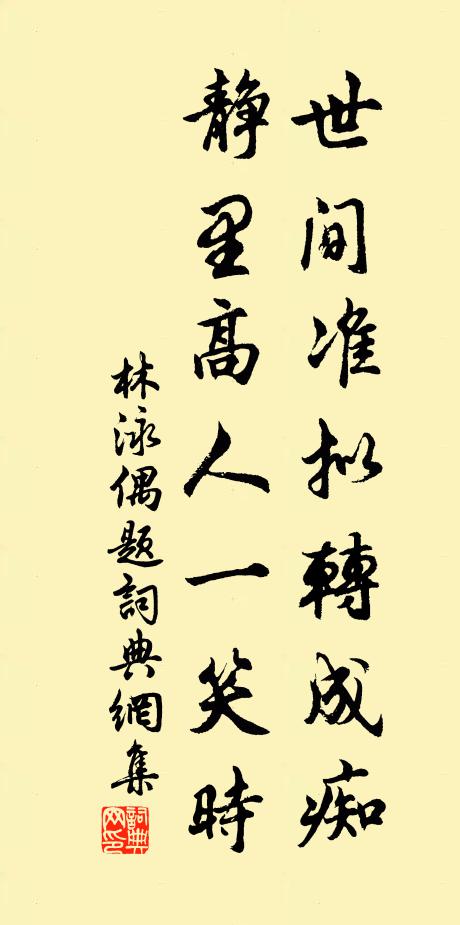 世间准拟轉成痴
静里高人一笑時
林泳偶题詞典網集
詞典网印